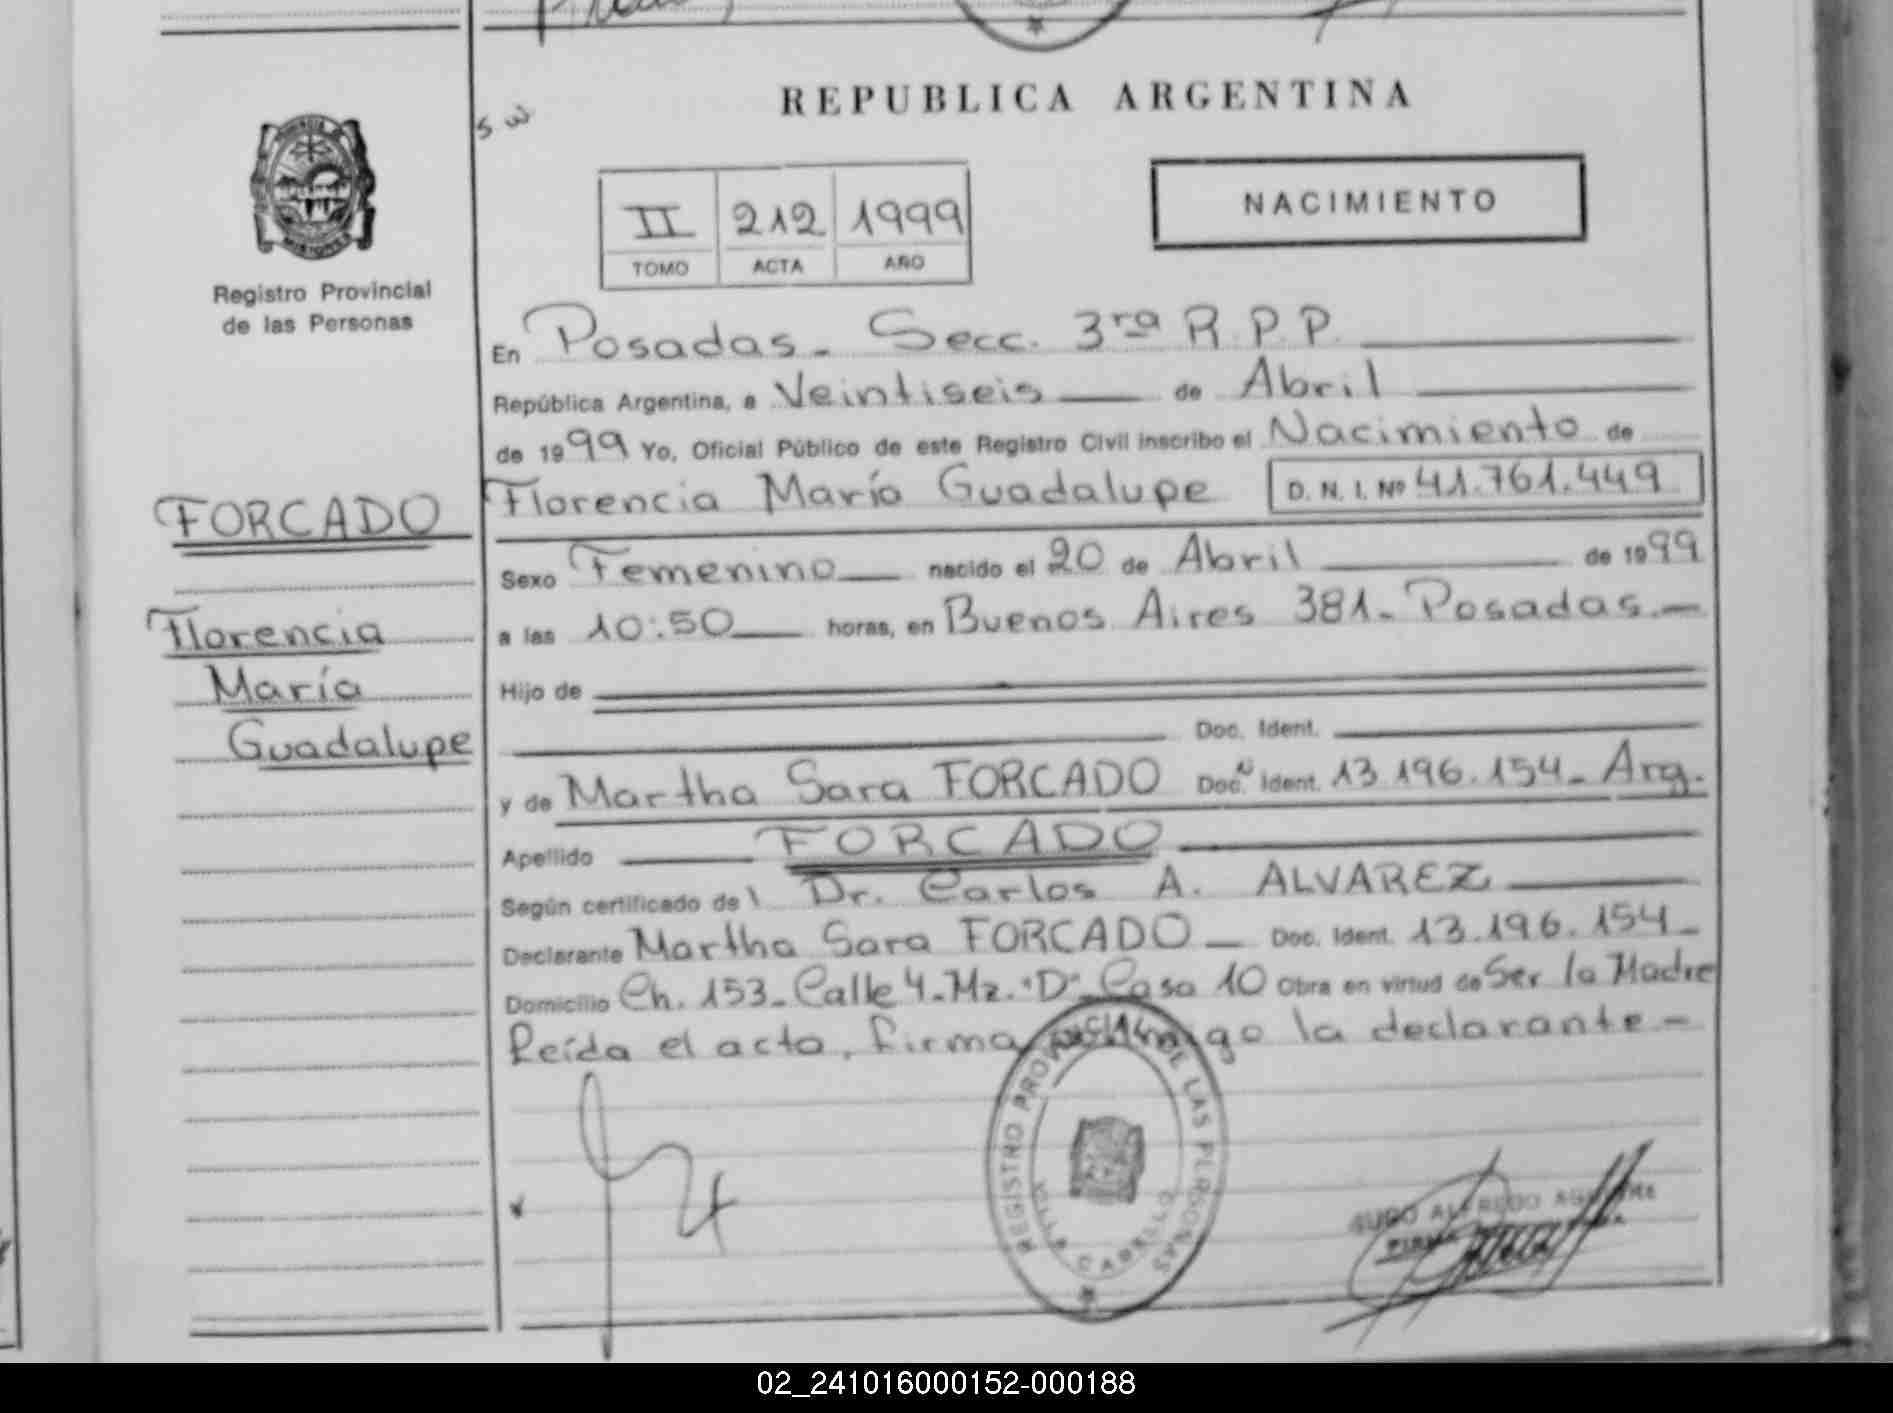 REPUBLICA ARGENTINA
II 212 1999
TOMO ACTA AÑO
NACIMIENTO
PROVINCIA DE MISIONES
Registro Provincial
de las Personas
FORCADO
Florencia
María
Guadalupe
En Posadas - Secc. 3ra R.P.P.
República Argentina, a Veintiseis de Abril
de 1999 Yo, Oficial Público de este Registro Civil inscribo el Nacimiento de
Florencia María Guadalupe D. N. I. Nº 41.761.449
Sexo Femenino nacido el 20 de Abril de 1999
a las 10:50 horas, en Buenos Aires 381 - Posadas.-
Hijo de
Doc. Ident.
y de Martha Sara FORCADO Doc. N Ident. 13.196.154 - Arg.
Apellido FORCADO
Según certificado del Dr. Carlos A. ALVAREZ
Declarante Martha Sara FORCADO - Doc. Ident. 13.196.154 -
Domicilio Ch. 153 - Calle 4 - Mz. "D" - Casa 10 Obra en virtud de Ser la Madre
Leída el acta, firma conmigo la declarante -
REGISTRO PROVINCIAL DE LAS PERSONAS
VILLA CABELLO
HUGO ALFREDO
02_241016000152-000188